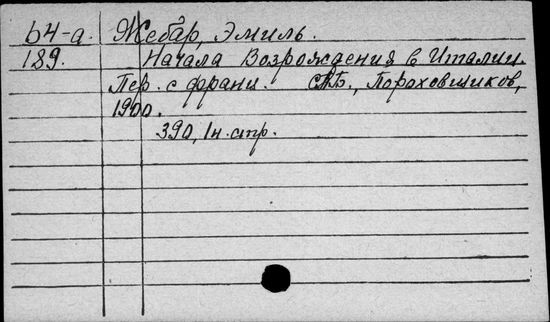 64-а. Жебар, Эмиль.
189. Начала Возрождения в Италии.
Пер. с франц. СПБ., Пороховщиков,
1900.
390, 1н. стр.